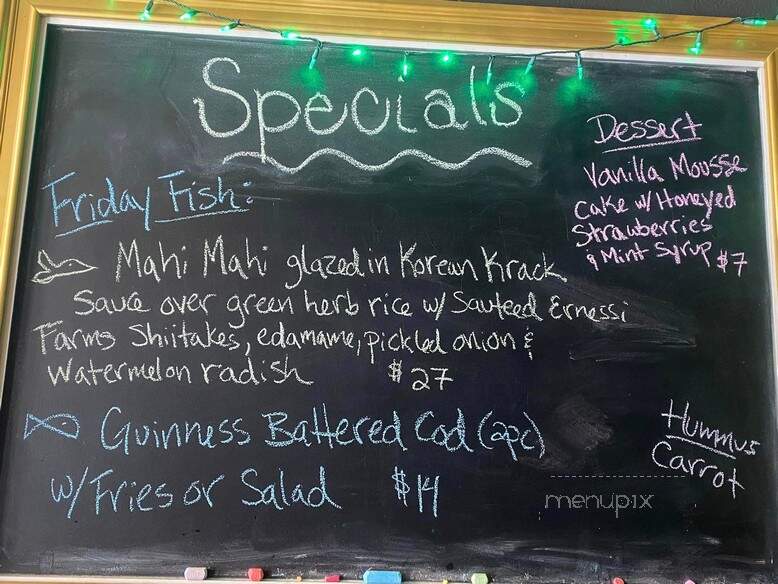 Specials
Friday Fish:
Mahi Mahi glazed in Korean Krack
Sauce over green herb rice w/ Sauteed Ernessi
Farms Shiitakes, edamame, pickled onion &
Watermelon radish $27
Guinness Battered Cod (2pc)
w/ Fries or Salad $14
Dessert
Vanilla Mousse
Cake w/ Honeyed
Strawberries
& Mint Syrup $7
Hummus
Carrot
menupix